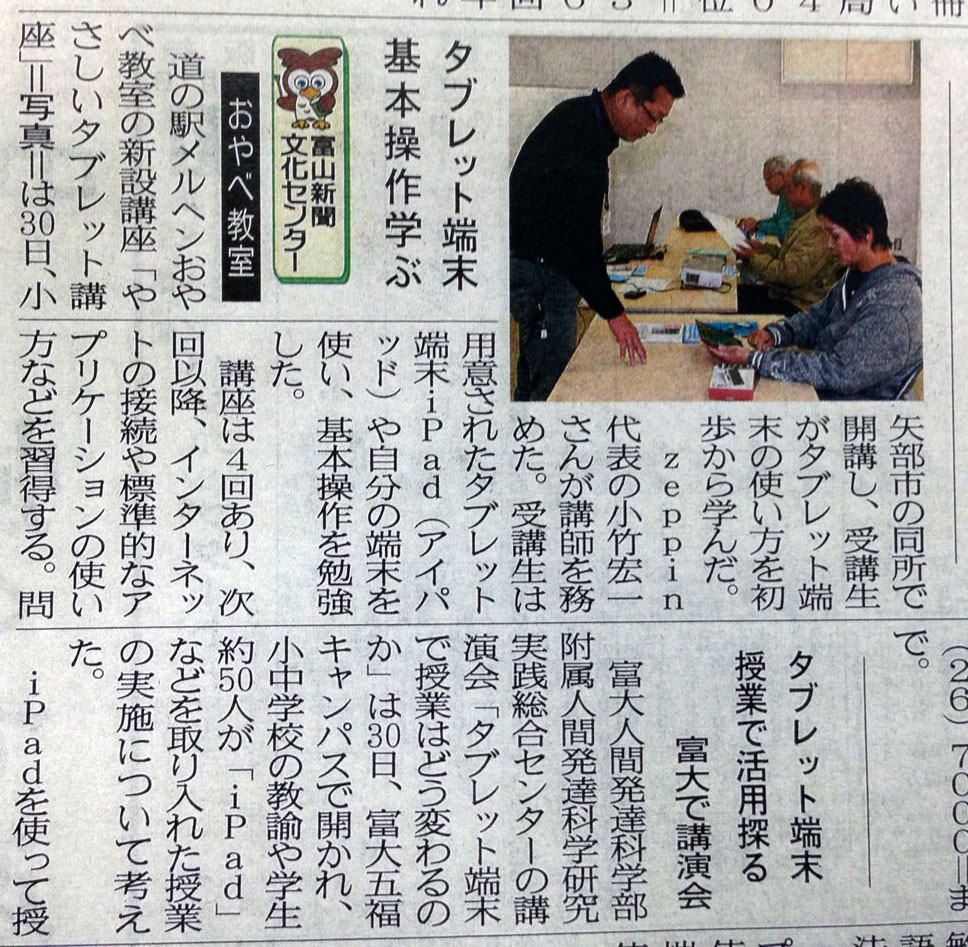 タブレット端末
基本操作学ぶ
富山新聞
文化センター
おやべ教室
道の駅メルヘンおや
べ教室の新設講座「や
さしいタブレット講
座」＝写真＝は30日、小
矢部市の同所で
開講し、受講生
がタブレット端
末の使い方を初
歩から学んだ。
ｚｅｐｐｉｎ
代表の小竹宏一
さんが講師を務
めた。受講生は
用意されたタブレット
端末ｉＰａｄ（アイパ
ッド）や自分の端末を
使い、基本操作を勉強
した。
講座は４回あり、次
回以降、インターネッ
トの接続や標準的なア
プリケーションの使い
方などを習得する。問
（２６）７０００＝ま
で。
タブレット端末
授業で活用探る
富大で講演会
富大人間発達科学部
附属人間発達科学研究
実践総合センターの講
演会「タブレット端末
で授業はどう変わるの
か」は30日、富大五福
キャンパスで開かれ、
小中学校の教諭や学生
約50人が「ｉＰａｄ」
などを取り入れた授業
の実施について考え
た。
ｉＰａｄを使って授